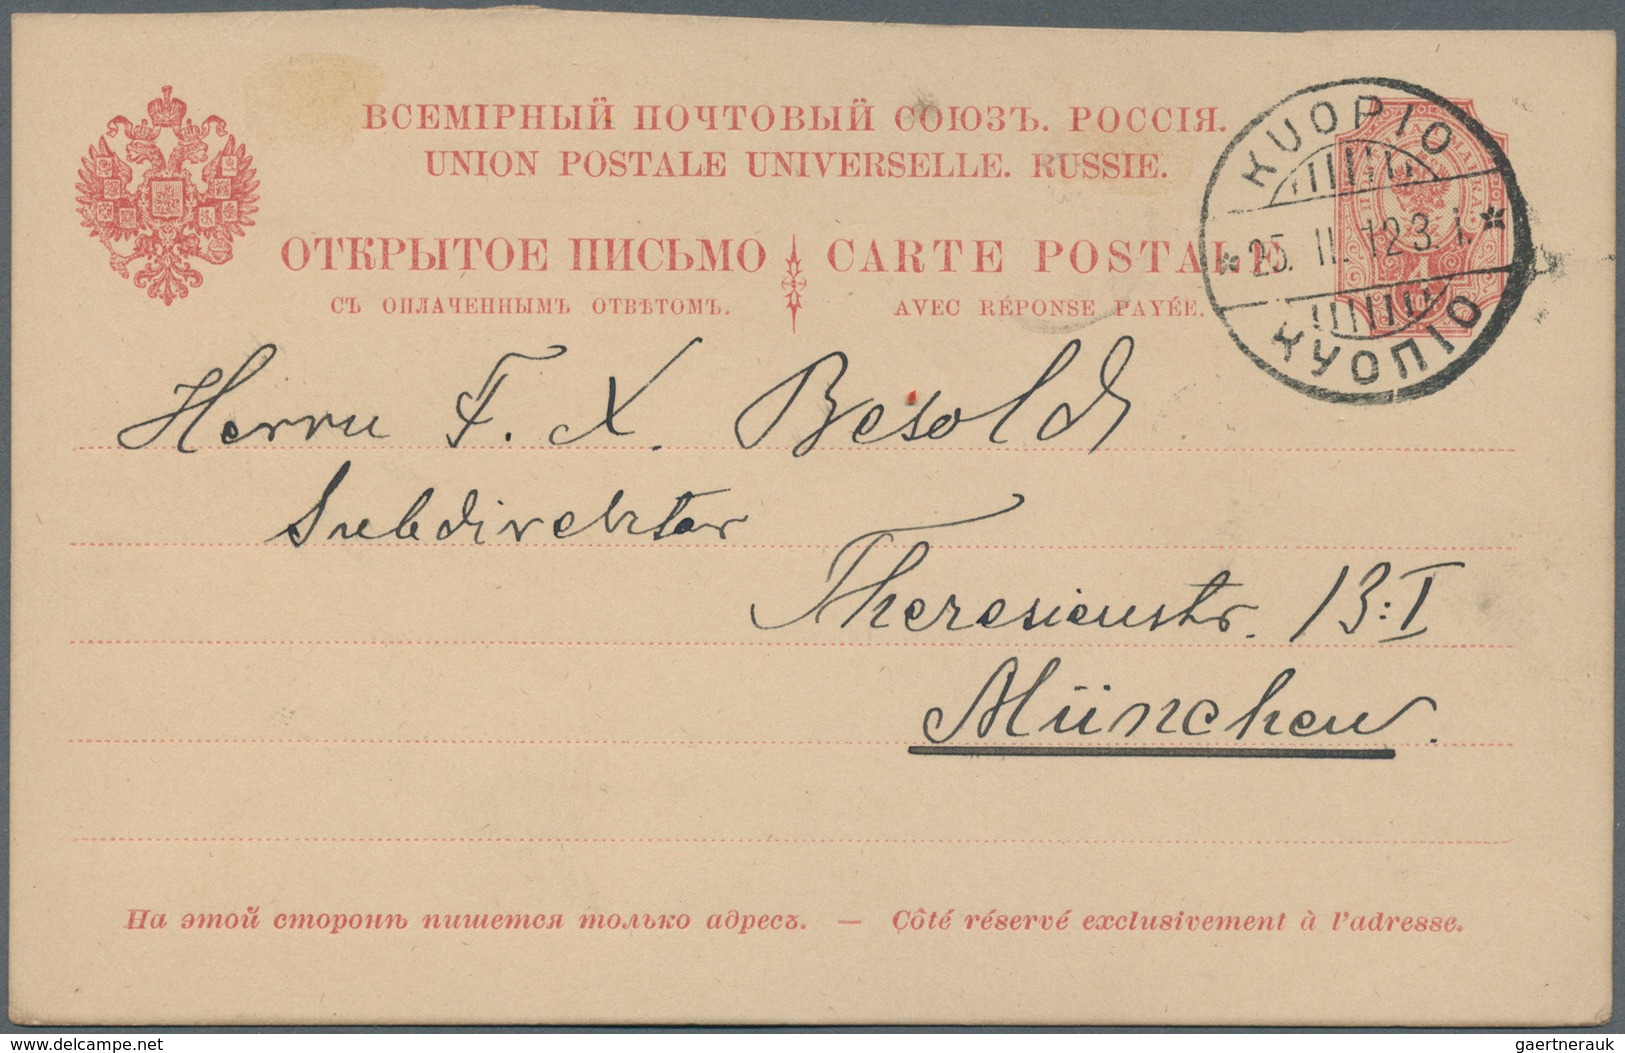 ВСЕМІРНЫЙ ПОЧТОВЫЙ СОЮЗЪ. РОССІЯ.
UNION POSTALE UNIVERSELLE. RUSSIE.
ОТКРЫТОЕ ПИСЬМО CARTE POSTALE
СЪ ОПЛАЧЕННЫМЪ ОТВѢТОМЪ. AVEC RÉPONSE PAYÉE.
KUOPIO
25. II. 12 3 i.
КУОПІО
Herrn F. X. Besold
Subdirektor
Theresienstr. 13:I
München.
На этой сторонѣ пишется только адресъ. — Côté réservé exclusivement à l'adresse.
www.delcampe.net
gaertnerauk